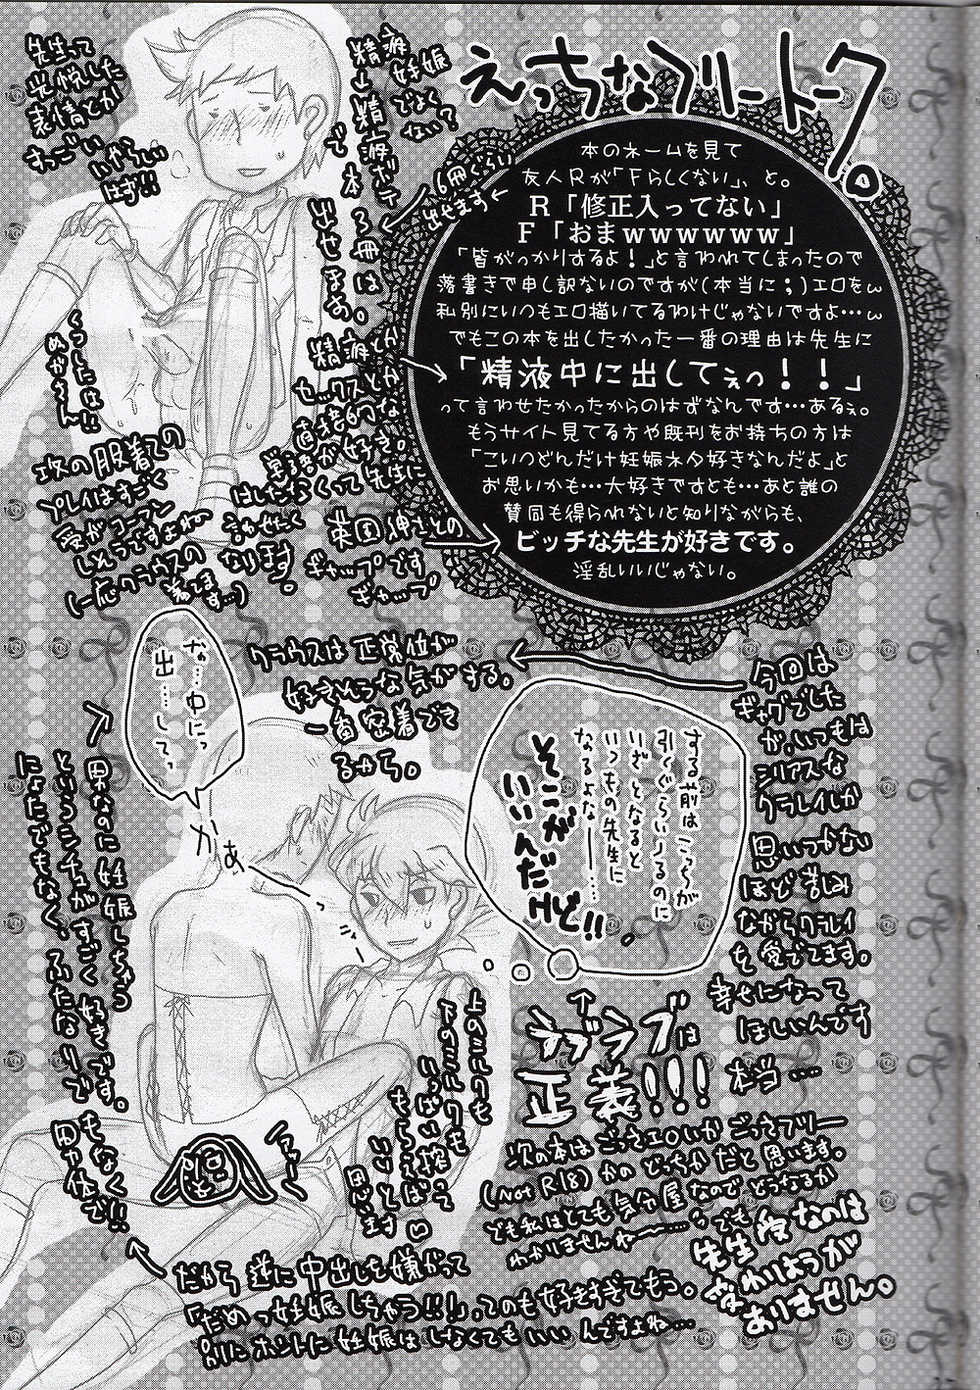 えっちなフリートーク。
本のネームを見て
友人Rが「Fらしくない」、と。
R「修正入ってない」
F「おまwwwwww」
「皆がっかりするよ！」と言われてしまったので
落書きで申し訳ないのですが(本当に；)エロをω
私別にいつもエロ描いてるわけじゃないですよ…ω
でもこの本を出したかった一番の理由は先生に
「精液中に出してぇっ！！」
って言わせたかったからのはずなんです…あるぇ。
もうサイト見てる方や既刊をお持ちの方は
「こいつどんだけ妊娠ネタ好きなんだよ」と
お思いかも…大好きですとも…あと誰の
賛同も得られないと知りながらも、
ビッチな先生が好きです。
淫乱いいじゃない。
精液
↓妊娠
精液ボテ
でよく
ない？
で本3冊は
出せます。
←6冊ぐらい
出せます←
先生って
恍惚した
表情とか
すっごい
いやらしい
はず!!
くつしたは
ぬがさん!!
精液とか
セックスとか
直接的な
単語が好き。
はしたなくって先生に
英国紳士との
ギャップです
ギャップ
攻の服着ての
プレイはすごく
受がコーフン
しそうですよね
(一応クラウスの
着てます…)
クラウスは正常位が
好きそうな気がする。
一番密着でき
るから。
な…中にっ
出…してっ
かぁ
する前はこっちが
引くぐらい
いざとなると
いつもの先生に
なるよなーー…
そこが
いいんだ
けど!!
今回は
ギャグでした
が、いつもは
シリアスな
クラレイしか
思いつかない
ほど苦しみ
ながらクラレイ
を愛でてます。
幸せになって
ほしいんです
本当…
ラブラブは
正義!!!
上のミルクも
下のミルクも
いっぱい搾って
もらえば
いいと
思います
男なのに妊娠しちゃう
というシチュがすごく好きです。
にょたでもなく、ふたなりで
もなく
男の体で!!
だから逆に中出しを嫌がって
「だめっ妊娠しちゃう!!!」ってのも好きすぎてもう。
別にホントに妊娠はしなくてもいいんですよね…
次の本はごっさエロいかごっさフリー
(Not R18)かのどっちかだと思います。
ども私はとても気分屋なのでどうなるか
わかりませんねーー…っでも
先生受なのは
変わりようが
ありません。